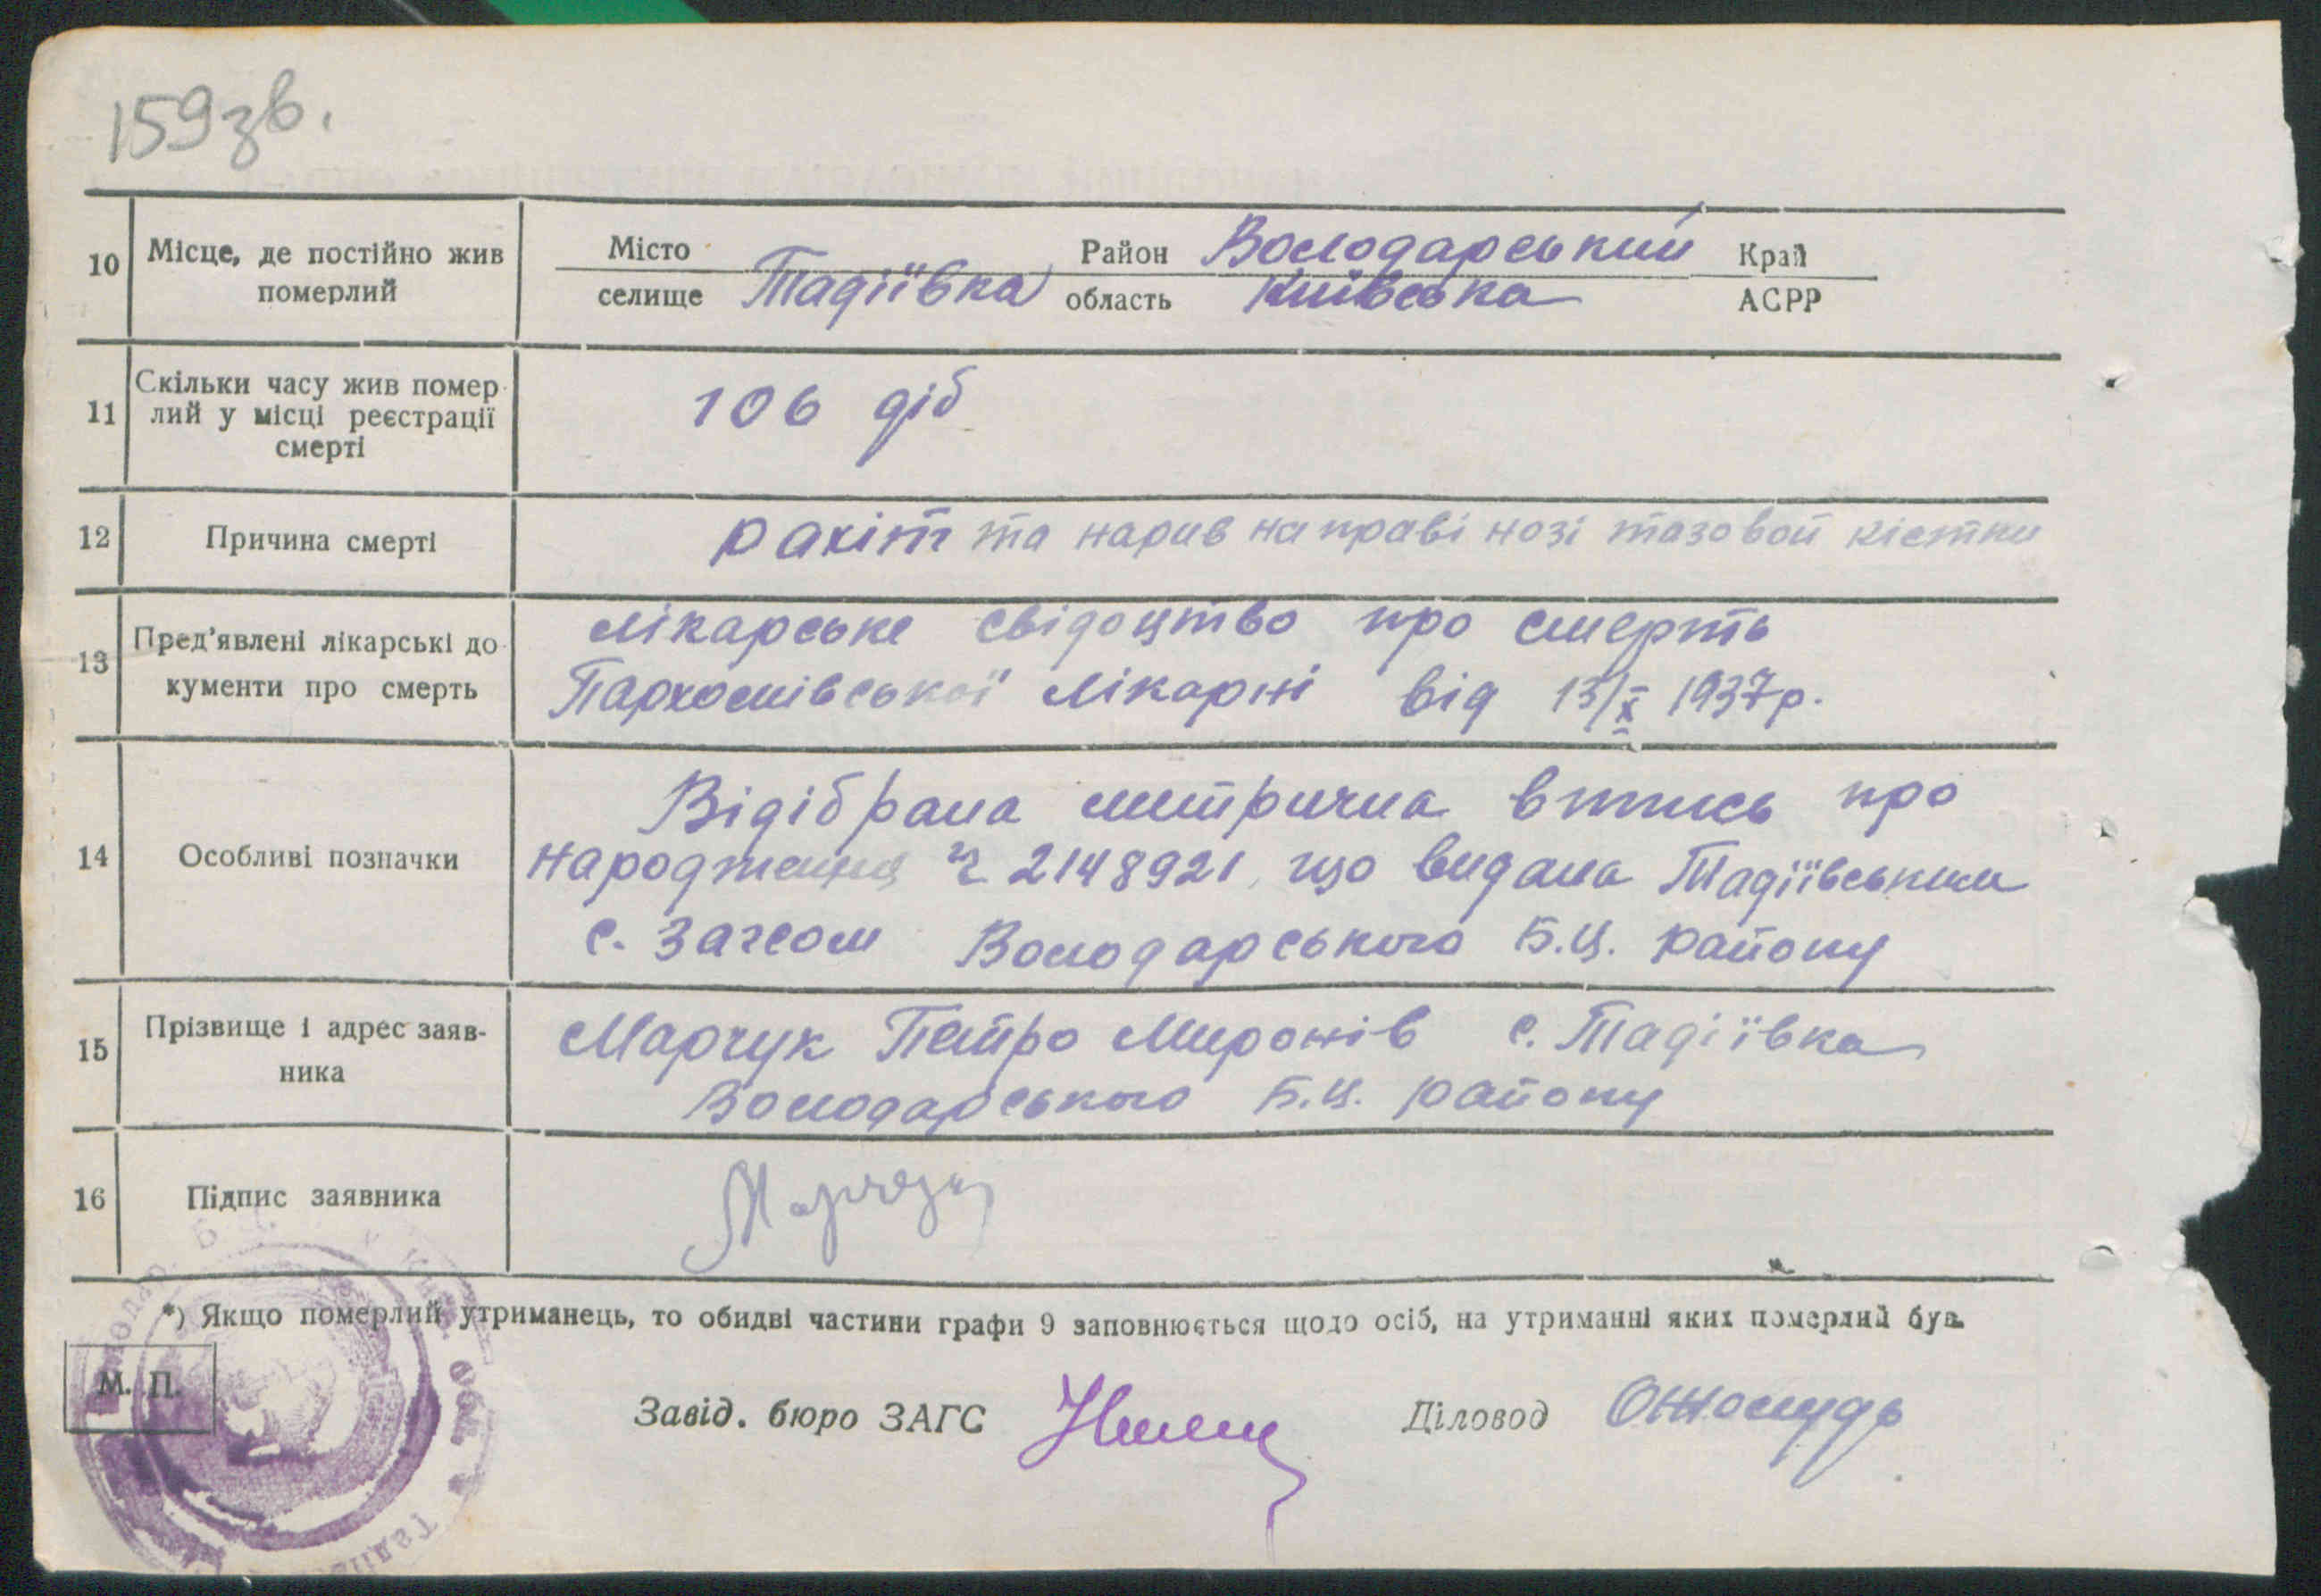 159зв.
10 Місце, де постійно жив померлий
Місто селище Тадіївка Район Володарський область Київська Край АСРР
11 Скільки часу жив помер-
лий у місці реєстрації
смерті
106 діб
12 Причина смерті
рахіт та нарив на праві нозі тазовой кістки
13 Пред'явлені лікарські до-
кументи про смерть
Лікарське свідоцтво про смерть
Пархомівської лікарні від 13/X 1937р.
14 Особливі позначки
Відібрана метрична впись про
народження ч 2148921, що видана Тадіївським
с. Загсом Володарського Б.Ц. району
15 Прізвище і адрес заяв-
ника
Марчук Петро Миронів с. Тадіївка
Володарського Б.Ц. району
16 Підпис заявника
*) Якщо померлий утриманець, то обидві частини графи 9 заповнюється щодо осіб, на утриманні яких померлий був.
М. П.
Завід. бюро ЗАГС
Діловод